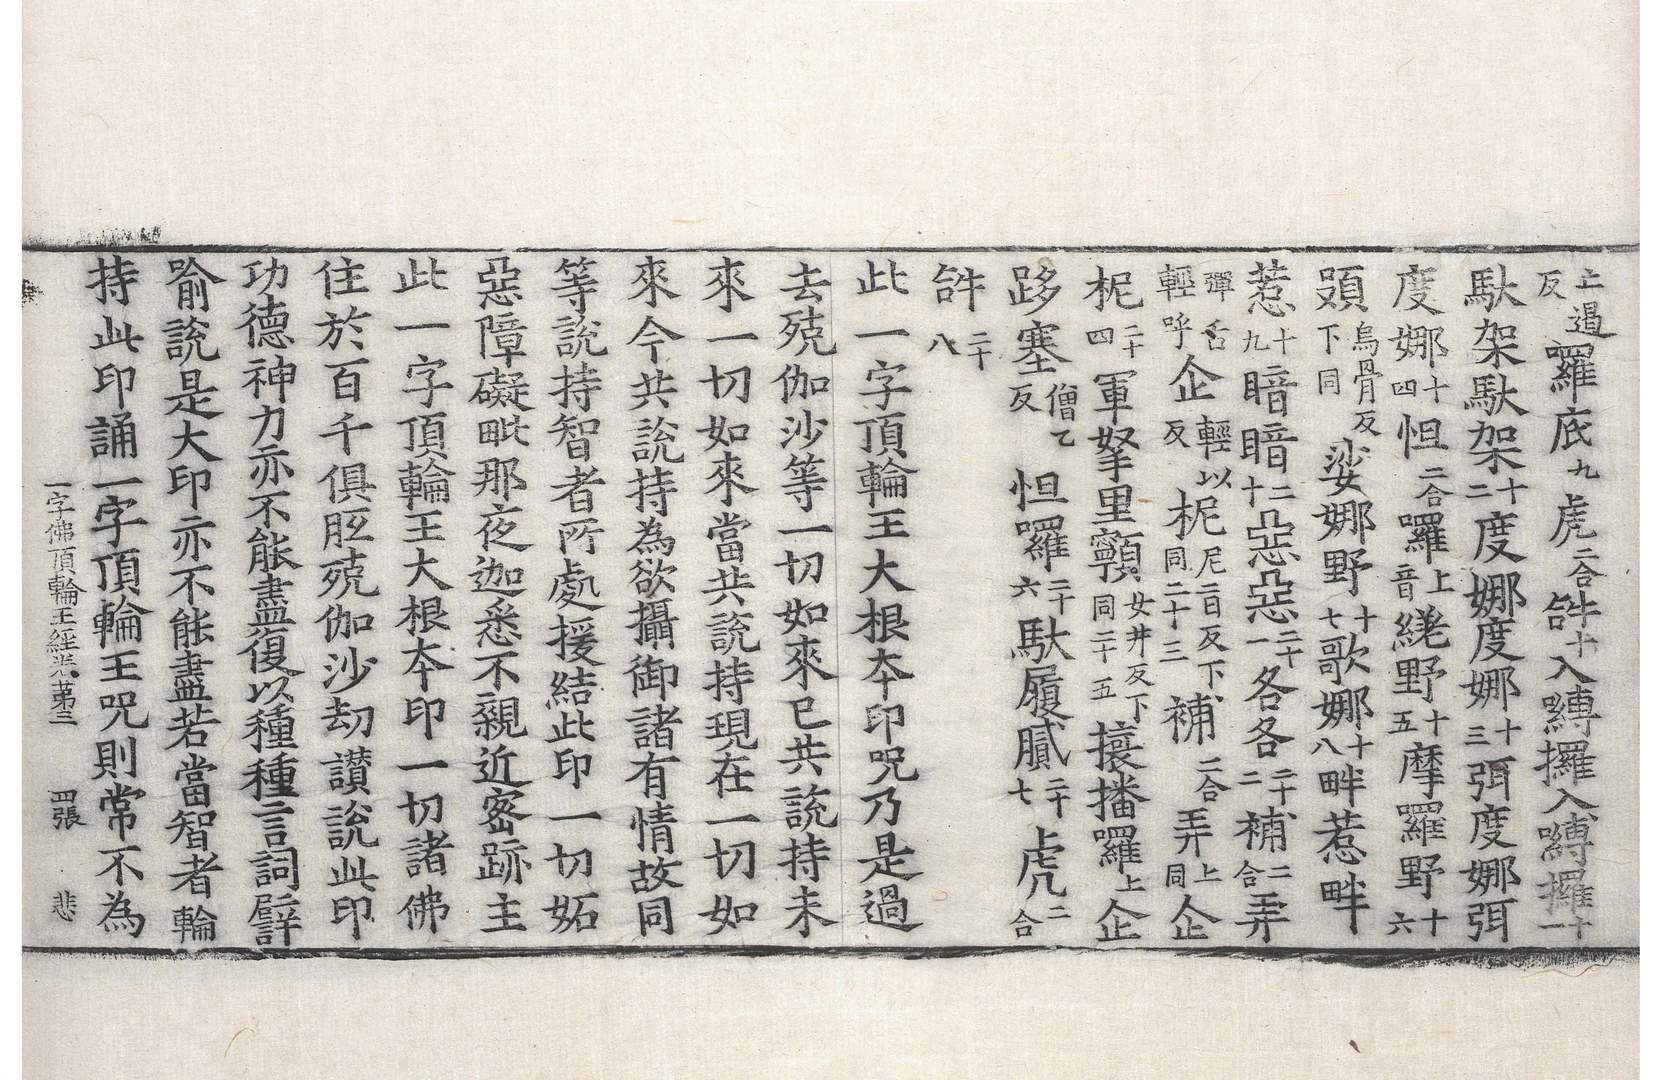 亡過反囉底九虎二合𤙖十入嚩攞入嚩攞十一
馱架馱架十二度娜度娜十三弭度娜弭
度娜十四怛二合囉上音繞野十五摩羅野十六
頞烏骨反下同娑娜野十七歌娜十八畔惹畔
惹十九暗暗二十惡惡二十一各各二十二補二合弄
彈舌輕呼企輕以反柅尼二日反下同二十三補二合弄上同企
柅二十四軍拏里顙女井反下同二十五攘播囉上企
跢塞僧乙反怛囉二十六馱履膩二十七虎二合
𤙖二十八
此一字頂輪王大根本印呪乃是過
去殑伽沙等一切如來已共說持未
來一切如來當共說持現在一切如
來今共說持為欲攝御諸有情故同
等說持智者所處援結此印一切妬
惡障礙毗那夜迦悉不親近密跡主
此一字頂輪王大根本印一切諸佛
住於百千俱胝殑伽沙劫讚說此印
功德神力亦不能盡復以種種言詞譬
喻說是大印亦不能盡若當智者輪
持此印誦一字頂輪王呪則常不為
一字佛頂輪王經卷第三 四張 悲